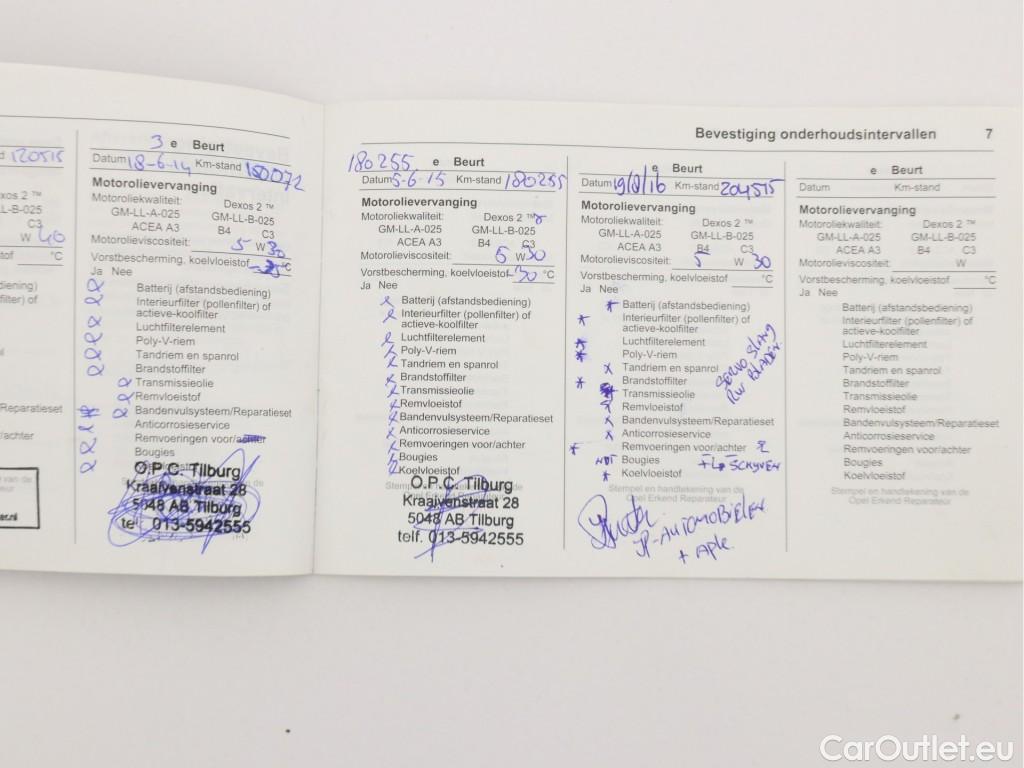 Bevestiging onderhoudsintervallen 7
120515
exos 2 ™
L-B-025
C3
W 40
tof °C
diening)
filter) of
/Reparatieset
/achter
van de
er.nl
3 e Beurt
Datum 18-6-14 Km-stand
Motorolievervanging
Motoroliekwaliteit: Dexos 2 ™
GM-LL-A-025 GM-LL-B-025
ACEA A3 B4 C3
Motorolieviscositeit: 5 W 30
Vorstbescherming, koelvloeistof °C
Ja Nee
Batterij (afstandsbediening)
Interieurfilter (pollenfilter) of
actieve-koolfilter
Luchtfilterelement
Poly-V-riem
Tandriem en spanrol
Brandstoffilter
Transmissieolie
Remvloeistof
Bandenvulsysteem/Reparatieset
Anticorrosieservice
Remvoeringen voor/achter
Bougies
O.P.C. Tilburg
Kraaivenstraat 28
5048 AB Tilburg
tel. 013-5942555
180255 e Beurt
Datum 5-6-15 Km-stand 180255
Motorolievervanging
Motoroliekwaliteit: Dexos 2 ™
GM-LL-A-025 GM-LL-B-025
ACEA A3 B4 C3
Motorolieviscositeit: 5 W 30
Vorstbescherming, koelvloeistof -30 °C
Ja Nee
Batterij (afstandsbediening)
Interieurfilter (pollenfilter) of
actieve-koolfilter
Luchtfilterelement
Poly-V-riem
Tandriem en spanrol
Brandstoffilter
Transmissieolie
Remvloeistof
Bandenvulsysteem/Reparatieset
Anticorrosieservice
Remvoeringen voor/achter
Bougies
Koelvloeistof
O.P.C. Tilburg
Kraaivenstraat 28
5048 AB Tilburg
telf. 013-5942555
e Beurt
Datum Km-stand 204515
Motorolievervanging
Motoroliekwaliteit: Dexos 2 ™
GM-LL-A-025 GM-LL-B-025
ACEA A3 B4 C3
Motorolieviscositeit: 5 W 30
Vorstbescherming, koelvloeistof °C
Ja Nee
Batterij (afstandsbediening)
Interieurfilter (pollenfilter) of
actieve-koolfilter
Luchtfilterelement
Poly-V-riem
Tandriem en spanrol
Brandstoffilter
Transmissieolie
Remvloeistof
Bandenvulsysteem/Reparatieset
Anticorrosieservice
Remvoeringen voor/achter
Bougies
Koelvloeistof
SERVO SLANG
RUW BLADEN
Stempel en handtekening van de
Opel Erkend Reparateur
JP-AUTOMOBIELEN
e Beurt
Datum Km-stand
Motorolievervanging
Motoroliekwaliteit: Dexos 2 ™
GM-LL-A-025 GM-LL-B-025
ACEA A3 B4 C3
Motorolieviscositeit: W
Vorstbescherming, koelvloeistof °C
Ja Nee
Batterij (afstandsbediening)
Interieurfilter (pollenfilter) of
actieve-koolfilter
Luchtfilterelement
Poly-V-riem
Tandriem en spanrol
Brandstoffilter
Transmissieolie
Remvloeistof
Bandenvulsysteem/Reparatieset
Anticorrosieservice
Remvoeringen voor/achter
Bougies
Koelvloeistof
Stempel en handtekening van de
Opel Erkend Reparateur
CarOutlet.eu